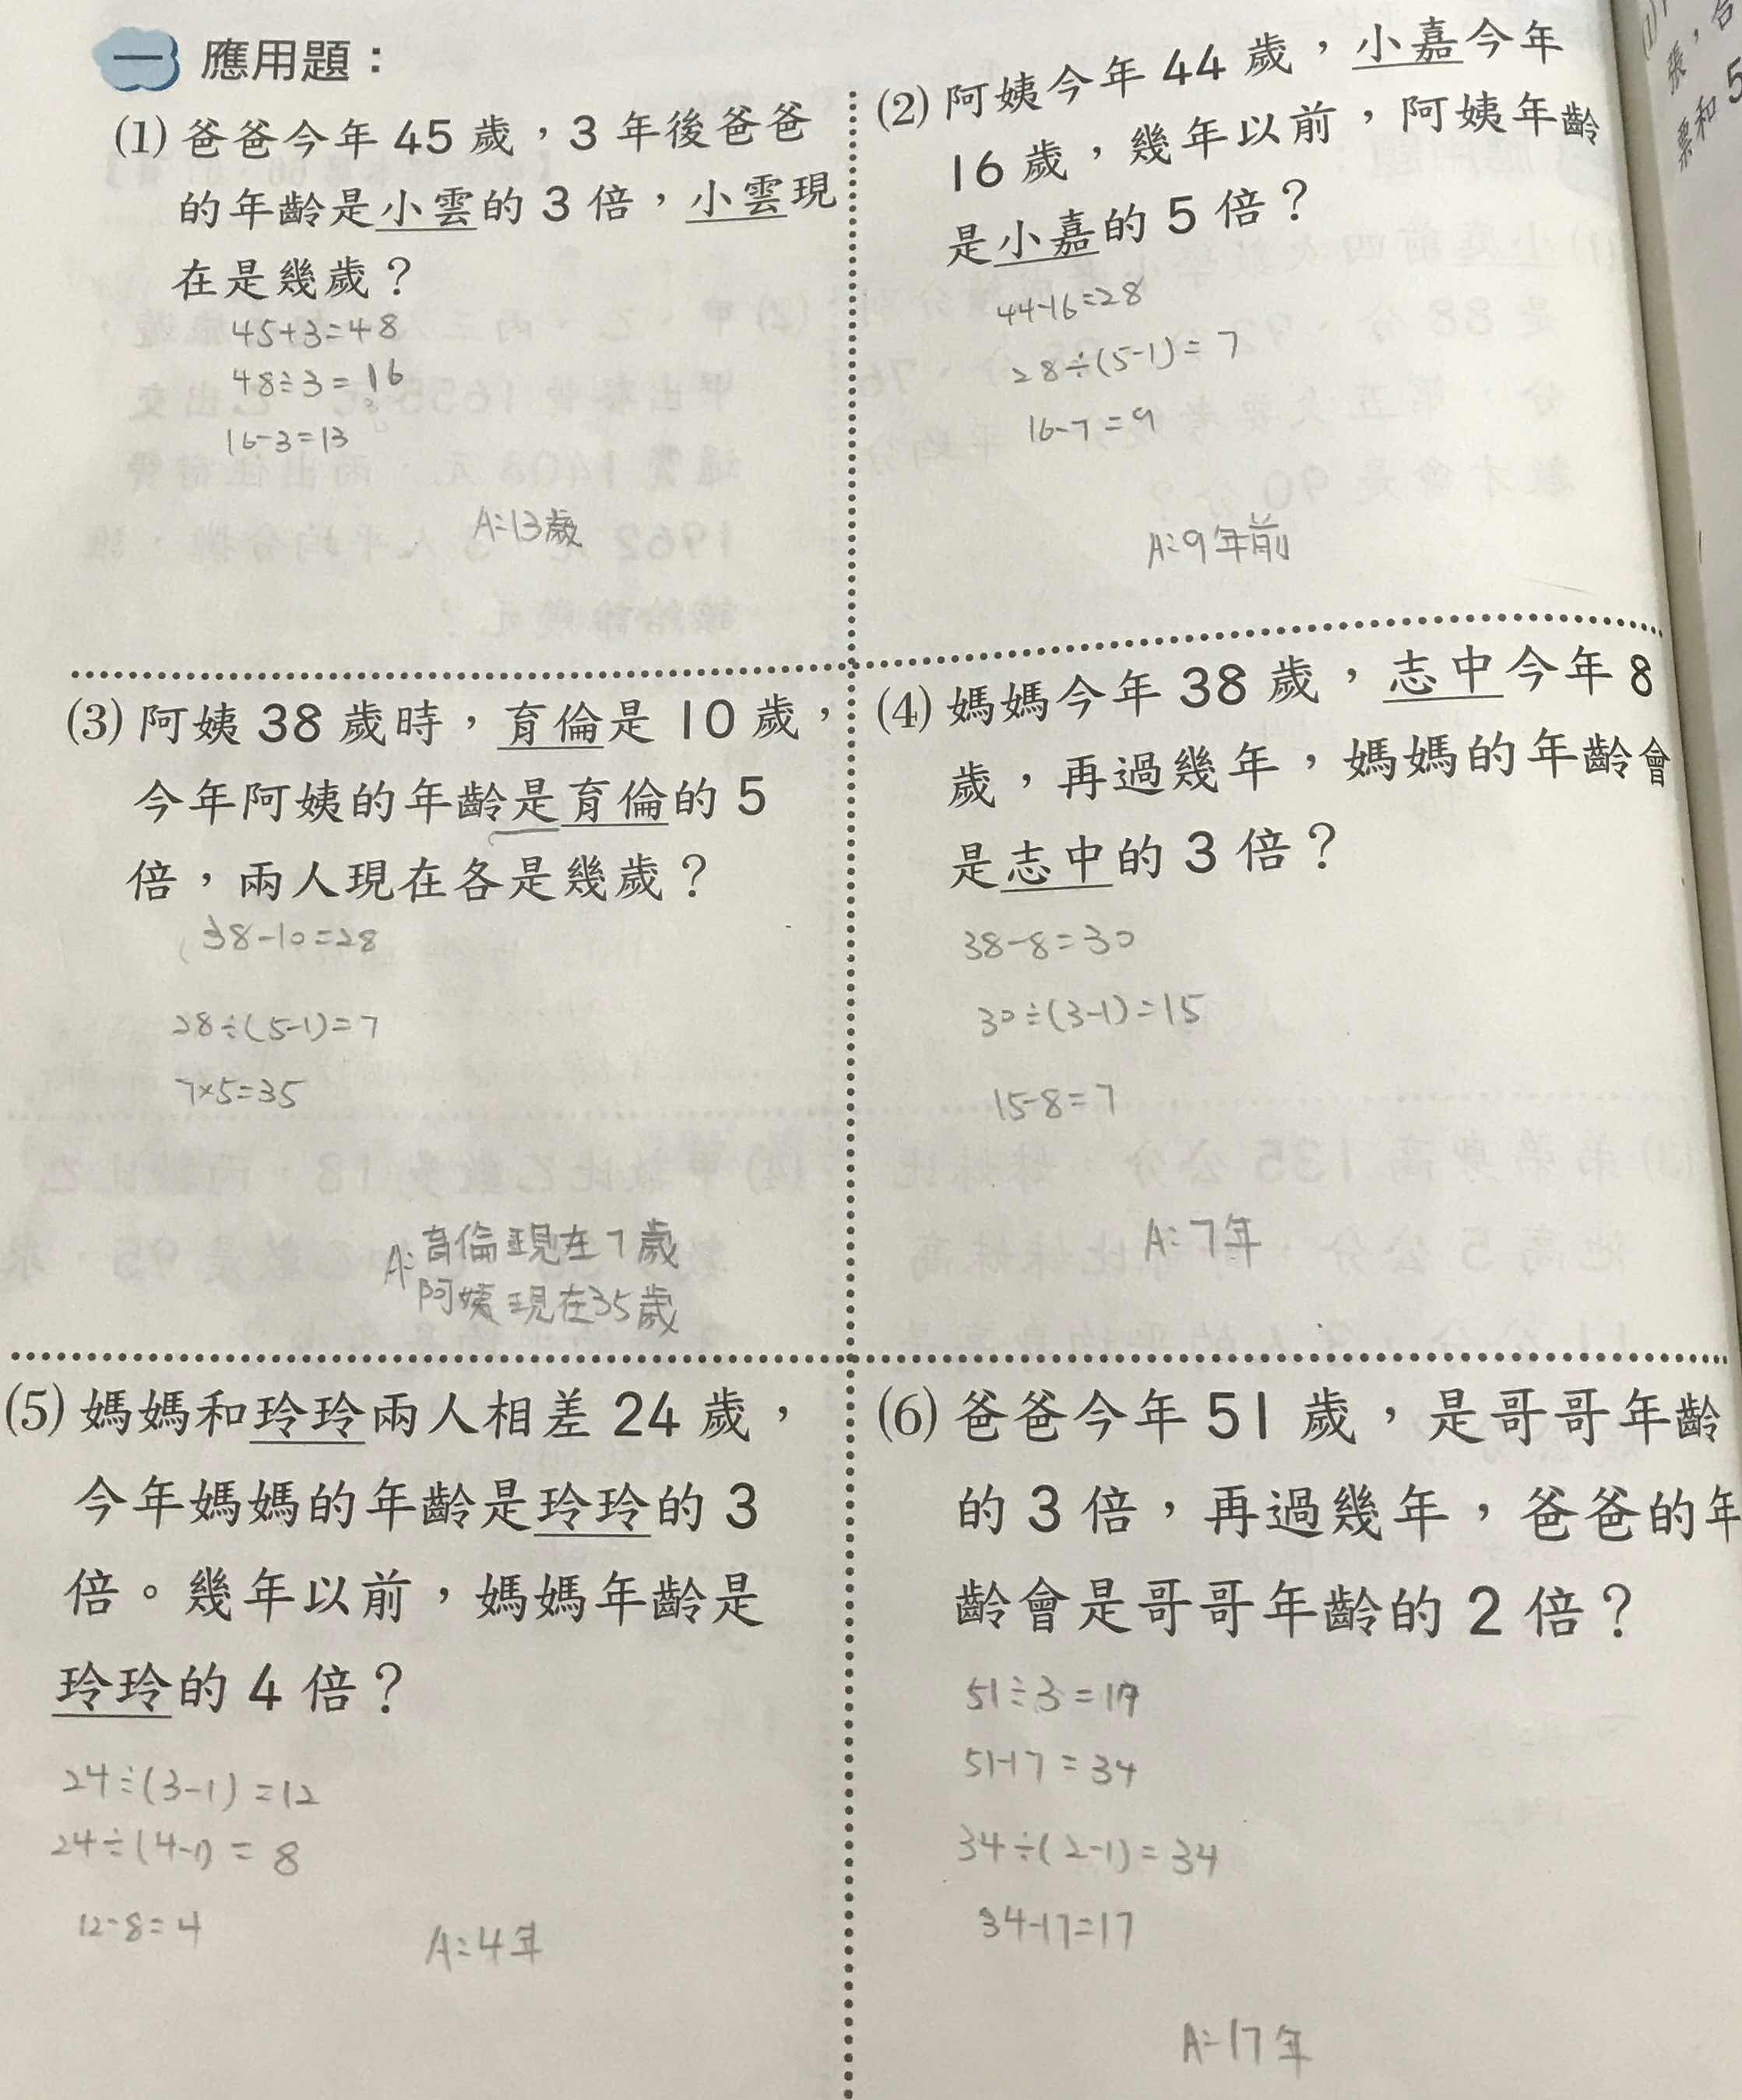 一 應用題：
(1) 爸爸今年 45 歲，3 年後爸爸
的年齡是小雲的 3 倍，小雲現
在是幾歲？
45+3=48
48÷3=16
16-3=13
A:13歲
(2) 阿姨今年 44 歲，小嘉今年
16 歲，幾年以前，阿姨年齡
是小嘉的 5 倍？
44-16=28
28÷(5-1)=7
16-7=9
A:9年前
(3) 阿姨 38 歲時，育倫是 10 歲，
今年阿姨的年齡是育倫的 5
倍，兩人現在各是幾歲？
38-10=28
28÷(5-1)=7
7×5=35
A:育倫現在7歲
阿姨現在35歲
(4) 媽媽今年 38 歲，志中今年 8
歲，再過幾年，媽媽的年齡會
是志中的 3 倍？
38-8=30
30÷(3-1)=15
15-8=7
A:7年
(5) 媽媽和玲玲兩人相差 24 歲，
今年媽媽的年齡是玲玲的 3
倍。幾年以前，媽媽年齡是
玲玲的 4 倍？
24÷(3-1)=12
24÷(4-1)=8
12-8=4
A:4年
(6) 爸爸今年 51 歲，是哥哥年齡
的 3 倍，再過幾年，爸爸的年
齡會是哥哥年齡的 2 倍？
51÷3=17
51-17=34
34÷(2-1)=34
34-17=17
A:17年
張，
票和 5